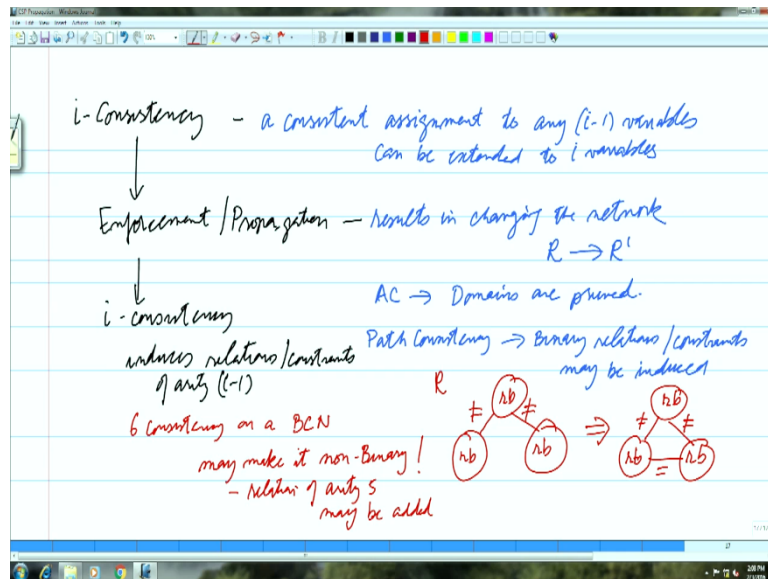 CSP Propagation - Windows Journal
File Edit View Insert Actions Tools Help
i-Consistency - a consistent assignment to any (i-1) variables
can be extended to i variables
Enforcement/Propagation - results in changing the network
R → R'
AC → Domains are pruned.
i-consistency
induces relations/constraints
of arity (i-1)
Path Consistency → Binary relations/constraints
may be induced
R
rb ≠ ≠ rb rb ⇒ rb ≠ ≠ rb = rb
6 consistency on a BCN
may make it non-Binary!
- relation of arity 5
may be added
2:08 PM